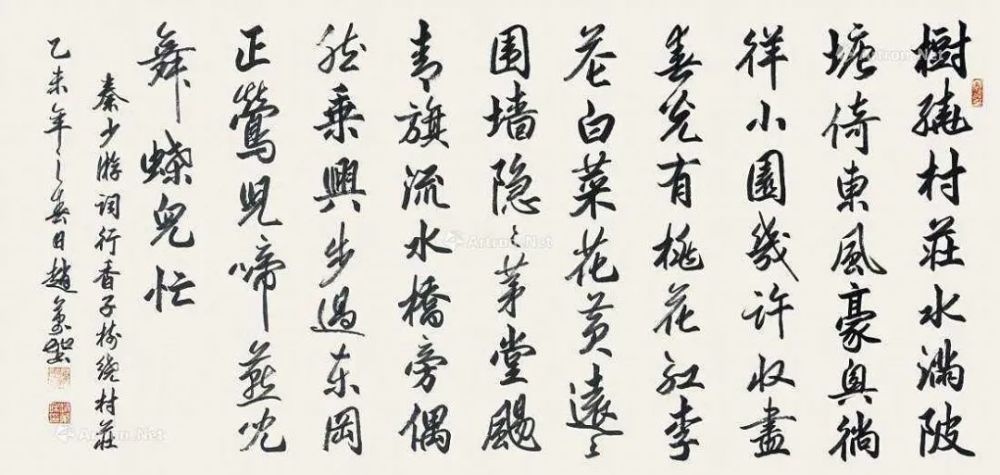 樹繞村莊水滿陂
塘倚東風豪興徜
徉小園幾許收盡
春光有桃花紅李
花白菜花黄遠々
围墙隐々茅堂颺
青旗流水橋旁偶
然乘興步過东岡
正鶯兒啼燕兒
舞蝶兒忙
秦少游词行香子树绕村莊
乙未年之春日趙
Artron.Net